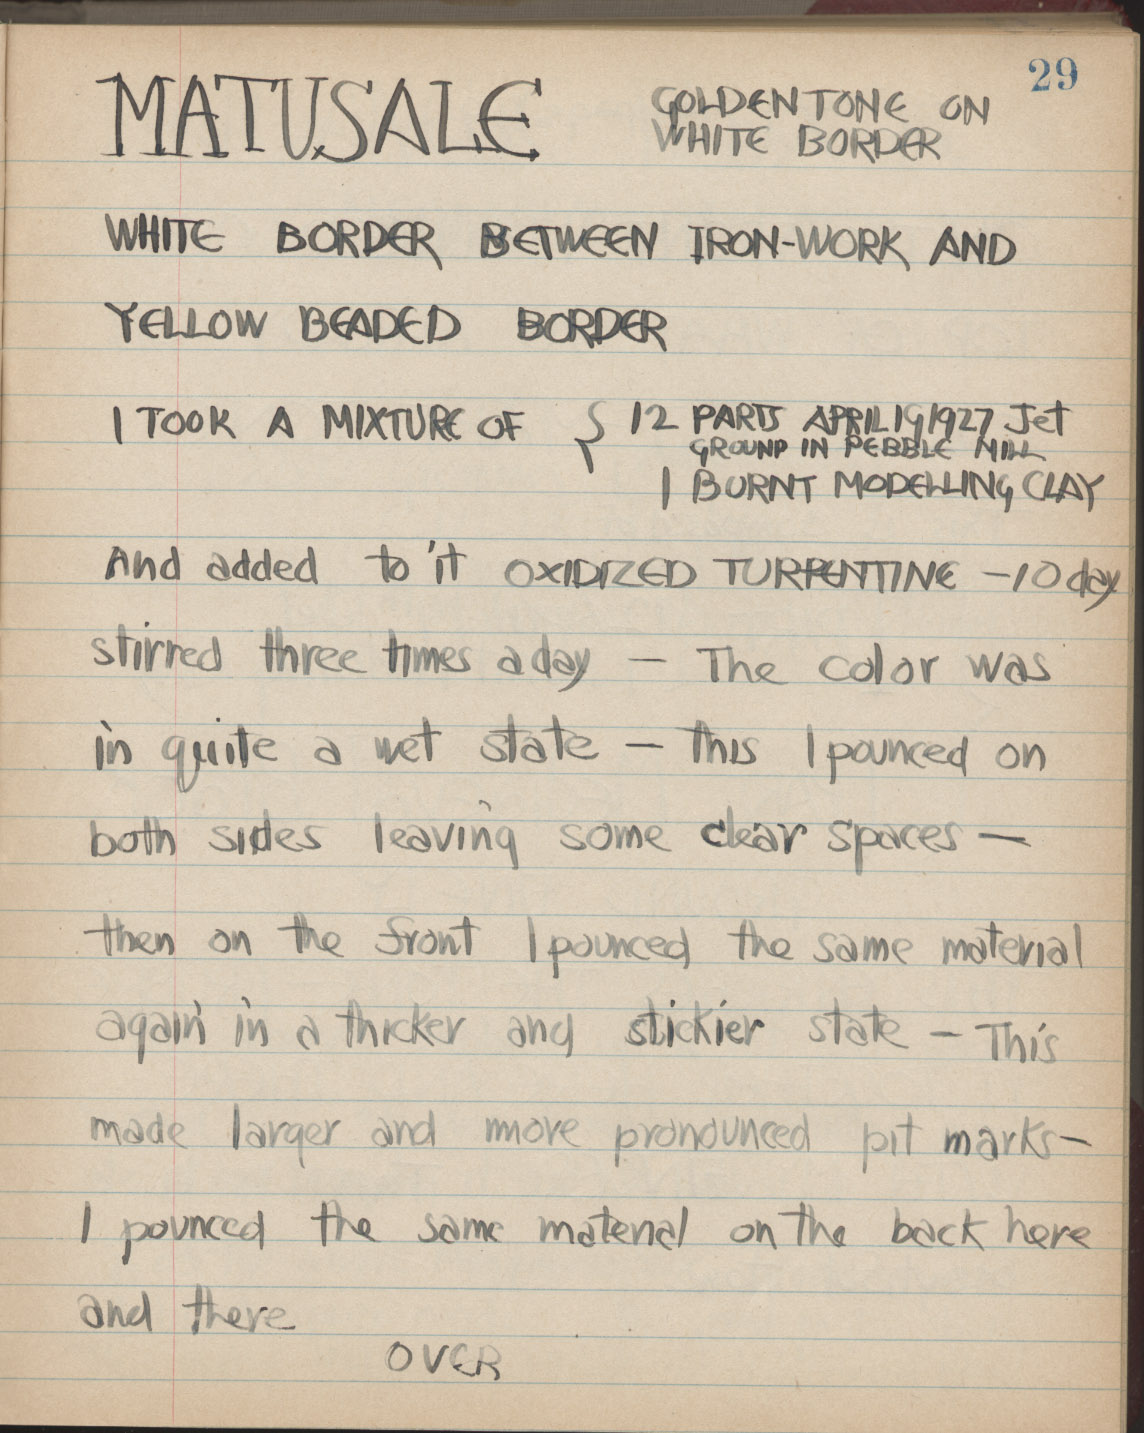 29
MATUSALE
GOLDEN TONE ON
WHITE BORDER
WHITE BORDER BETWEEN IRON-WORK AND
YELLOW BEADED BORDER
I TOOK A MIXTURE OF { 12 PARTS APRIL 19 1927 Jet
GROUND IN PEBBLE MILL
1 BURNT MODELLING CLAY
And added to it OXIDIZED TURPENTINE - 10 day
stirred three times a day - The color was
in quite a wet state - this I pounced on
both sides leaving some clear spaces -
then on the front I pounced the same material
again in a thicker and stickier state - This
made larger and more pronounced pit marks -
I pounced the same material on the back here
and there
OVER